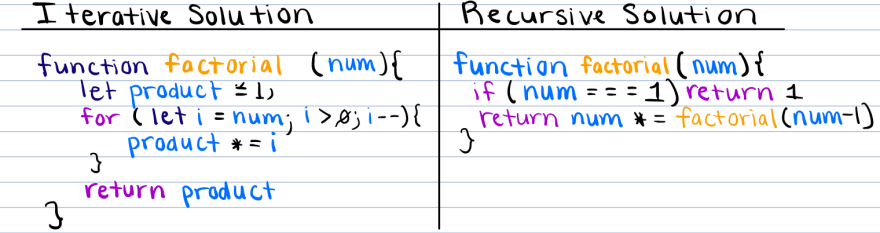 Iterative Solution
function factorial (num){
let product = 1;
for (let i = num; i > 0; i--){
product *= i
}
return product
}
Recursive Solution
function factorial(num){
if (num === 1) return 1
return num *= factorial(num-1)
}